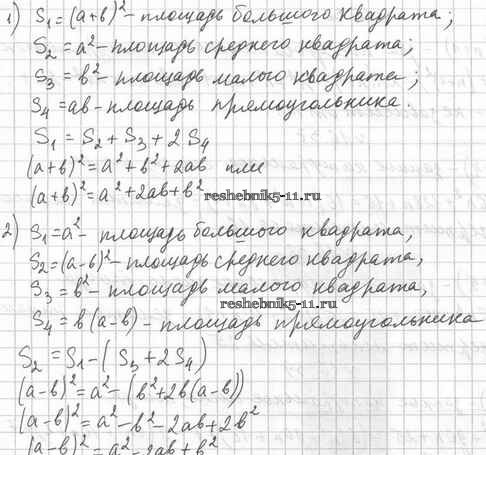 1) S₁ = (a+b)² – площадь большого квадрата;
S₂ = a² – площадь среднего квадрата;
S₃ = b² – площадь малого квадрата;
S₄ = ab – площадь прямоугольника.
S₁ = S₂ + S₃ + 2S₄
(a+b)² = a² + b² + 2ab или
(a+b)² = a² + 2ab + b²
reshebnik5-11.ru
2) S₁ = a² – площадь большого квадрата,
S₂ = (a-b)² – площадь среднего квадрата,
S₃ = b² – площадь малого квадрата,
reshebnik5-11.ru
S₄ = b(a-b) – площадь прямоугольника
S₂ = S₁ - (S₃ + 2S₄)
(a-b)² = a² - (b² + 2b(a-b))
(a-b)² = a² - b² - 2ab + 2b²
(a-b)² = a² - 2ab + b²